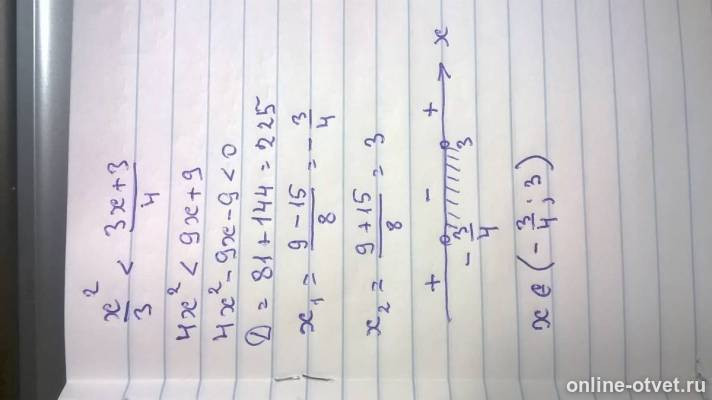 x²/3 < 3x+3/4
4x² < 9x+9
4x²-9x-9<0
D = 81+144 = 225
x₁ = 9-15/8 = -3/4
x₂ = 9+15/8 = 3
+ - + x
-3/4 3
x ∈ (-3/4; 3)
online-otvet.ru